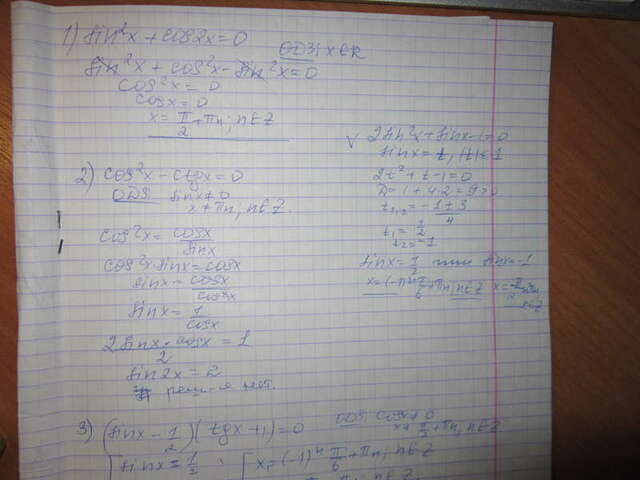 1) sin²x + cos2x = 0
ОДЗ: x∈R
sin²x + cos²x - sin²x = 0
cos²x = 0
cosx = 0
x = π/2 + πn; n∈Z
2) cos²x - ctgx = 0
ОДЗ: sinx ≠ 0
x ≠ πn; n∈Z.
cos²x = cosx/sinx
cos²x·sinx = cosx
sinx = cosx/cos²x
sinx = 1/cosx
2sinx·cosx/2 = 1
sin2x = 2
реш-я нет.
√ 2sin²x + sinx - 1 = 0
sinx = t, |t| ≤ 1
2t² + t - 1 = 0
D = 1 + 4·2 = 9 > 0
t₁,₂ = -1 ± 3/4
t₁ = 1/2
t₂ = -1
sinx = 1/2 или sinx = -1
x = (-1)ⁿ π/6 + πn, n∈Z x = -π/2
n∈Z
3) (sinx - 1/2)(tgx + 1) = 0
ОДЗ: cosx ≠ 0
x ≠ π/2 + πn; n∈Z
[sinx = 1/2 ; [x₁ = (-1)ⁿ π/6 + πn; n∈Z